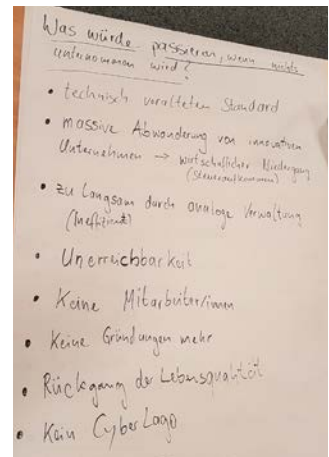 Was würde passieren, wenn nichts
unternommen wird?
• technisch veralteten Standard
• massive Abwanderung von innovativen
Unternehmen → wirtschaftlicher Niedergang
(Steueraufkommen)
• zu langsam durch analoge Verwaltung
(Ineffizienz)
• Unerreichbarkeit
• Keine Mitarbeiter/innen
• Keine Gründungen mehr
• Rückgang der Lebensqualität
• Kein CyberLago